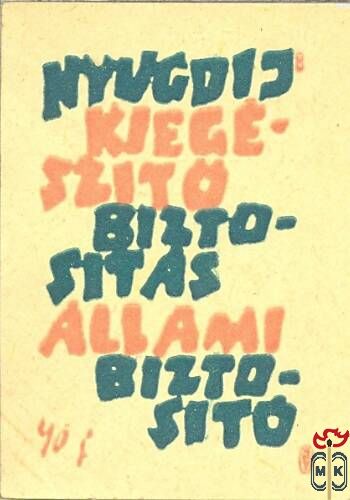 NYUGDIJ
KIEGÉ-
SZITO
BIZTO-
SITÁS
ÁLLAMI
BIZTO-
SITÓ
40 f
MK